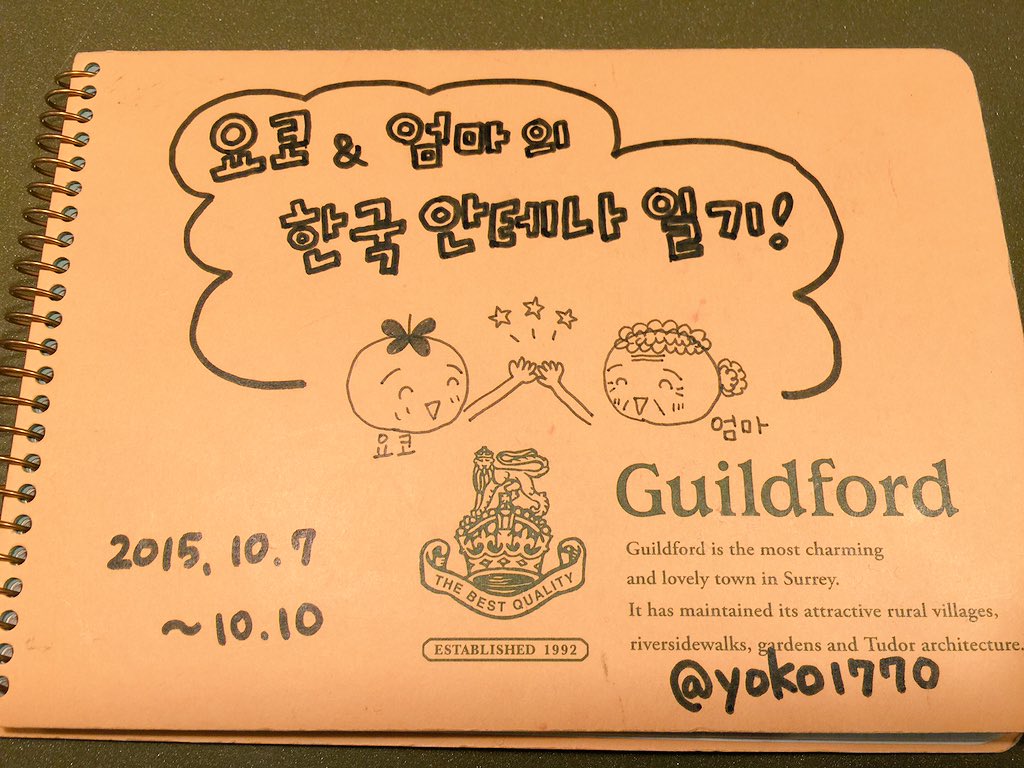 요코 & 엄마의
한국 안테나 일기!
요코
엄마
Guildford
Guildford is the most charming
and lovely town in Surrey.
It has maintained its attractive rural villages,
riversidewalks, gardens and Tudor architecture.
THE BEST QUALITY
ESTABLISHED 1992
2015. 10.7
~10.10
@yoko1770